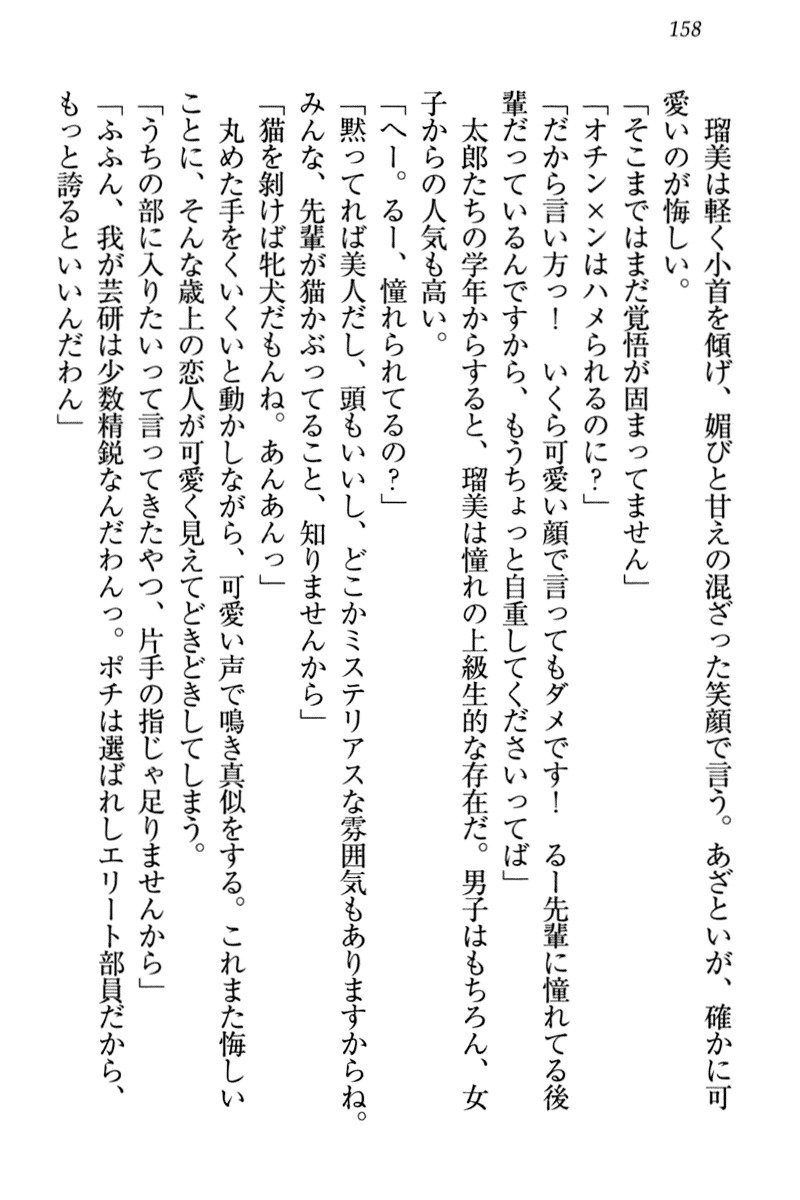 158
瑠美は軽く小首を傾げ、媚びと甘えの混ざった笑顔で言う。あざといが、確かに可
愛いのが悔しい。
「そこまではまだ覚悟が固まってません」
「オチン×ンはハメられるのに？」
「だから言い方っ！　いくら可愛い顔で言ってもダメです！　るー先輩に憧れてる後
輩だっているんですから、もうちょっと自重してくださいってば」
太郎たちの学年からすると、瑠美は憧れの上級生的な存在だ。男子はもちろん、女
子からの人気も高い。
「へー。るー、憧れられてるの？」
「黙ってれば美人だし、頭もいいし、どこかミステリアスな雰囲気もありますからね。
みんな、先輩が猫かぶってること、知りませんから」
「猫を剝けば牝犬だもんね。あんあんっ」
丸めた手をくいくいと動かしながら、可愛い声で鳴き真似をする。これまた悔しい
ことに、そんな歳上の恋人が可愛く見えてどきどきしてしまう。
「うちの部に入りたいって言ってきたやつ、片手の指じゃ足りませんから」
「ふふん、我が芸研は少数精鋭なんだわんっ。ポチは選ばれしエリート部員だから、
もっと誇るといいんだわん」